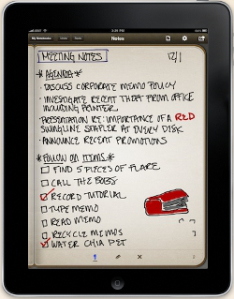 Notes
MEETING NOTES 12/1
* AGENDA *
· DISCUSS CORPORATE MEMO POLICY
· INVESTIGATE RECENT THEFT FROM OFFICE
INCLUDING PRINTER
· PRESENTATION RE: IMPORTANCE OF A RED
SWINGLINE STAPLER AT EVERY DESK
· ANNOUNCE RECENT PROMOTIONS
* FOLLOW ON ITEMS *
FIND 5 PIECES OF FLARE
CALL THE BOBS
RECORD TUTORIAL
TYPE MEMO
READ MEMO
RECYCLE MEMOS
WATER CHIA PET